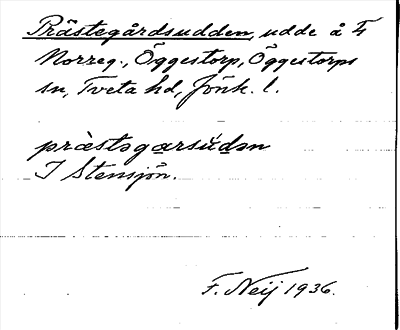 Prästegårdsudden, udde å F
Norreg., Öggestorp, Öggestorps
sn, Tveta hd, Jönk. l.
præ̀stəgarsúdən
I Stensjön.
F. Neij 1936.